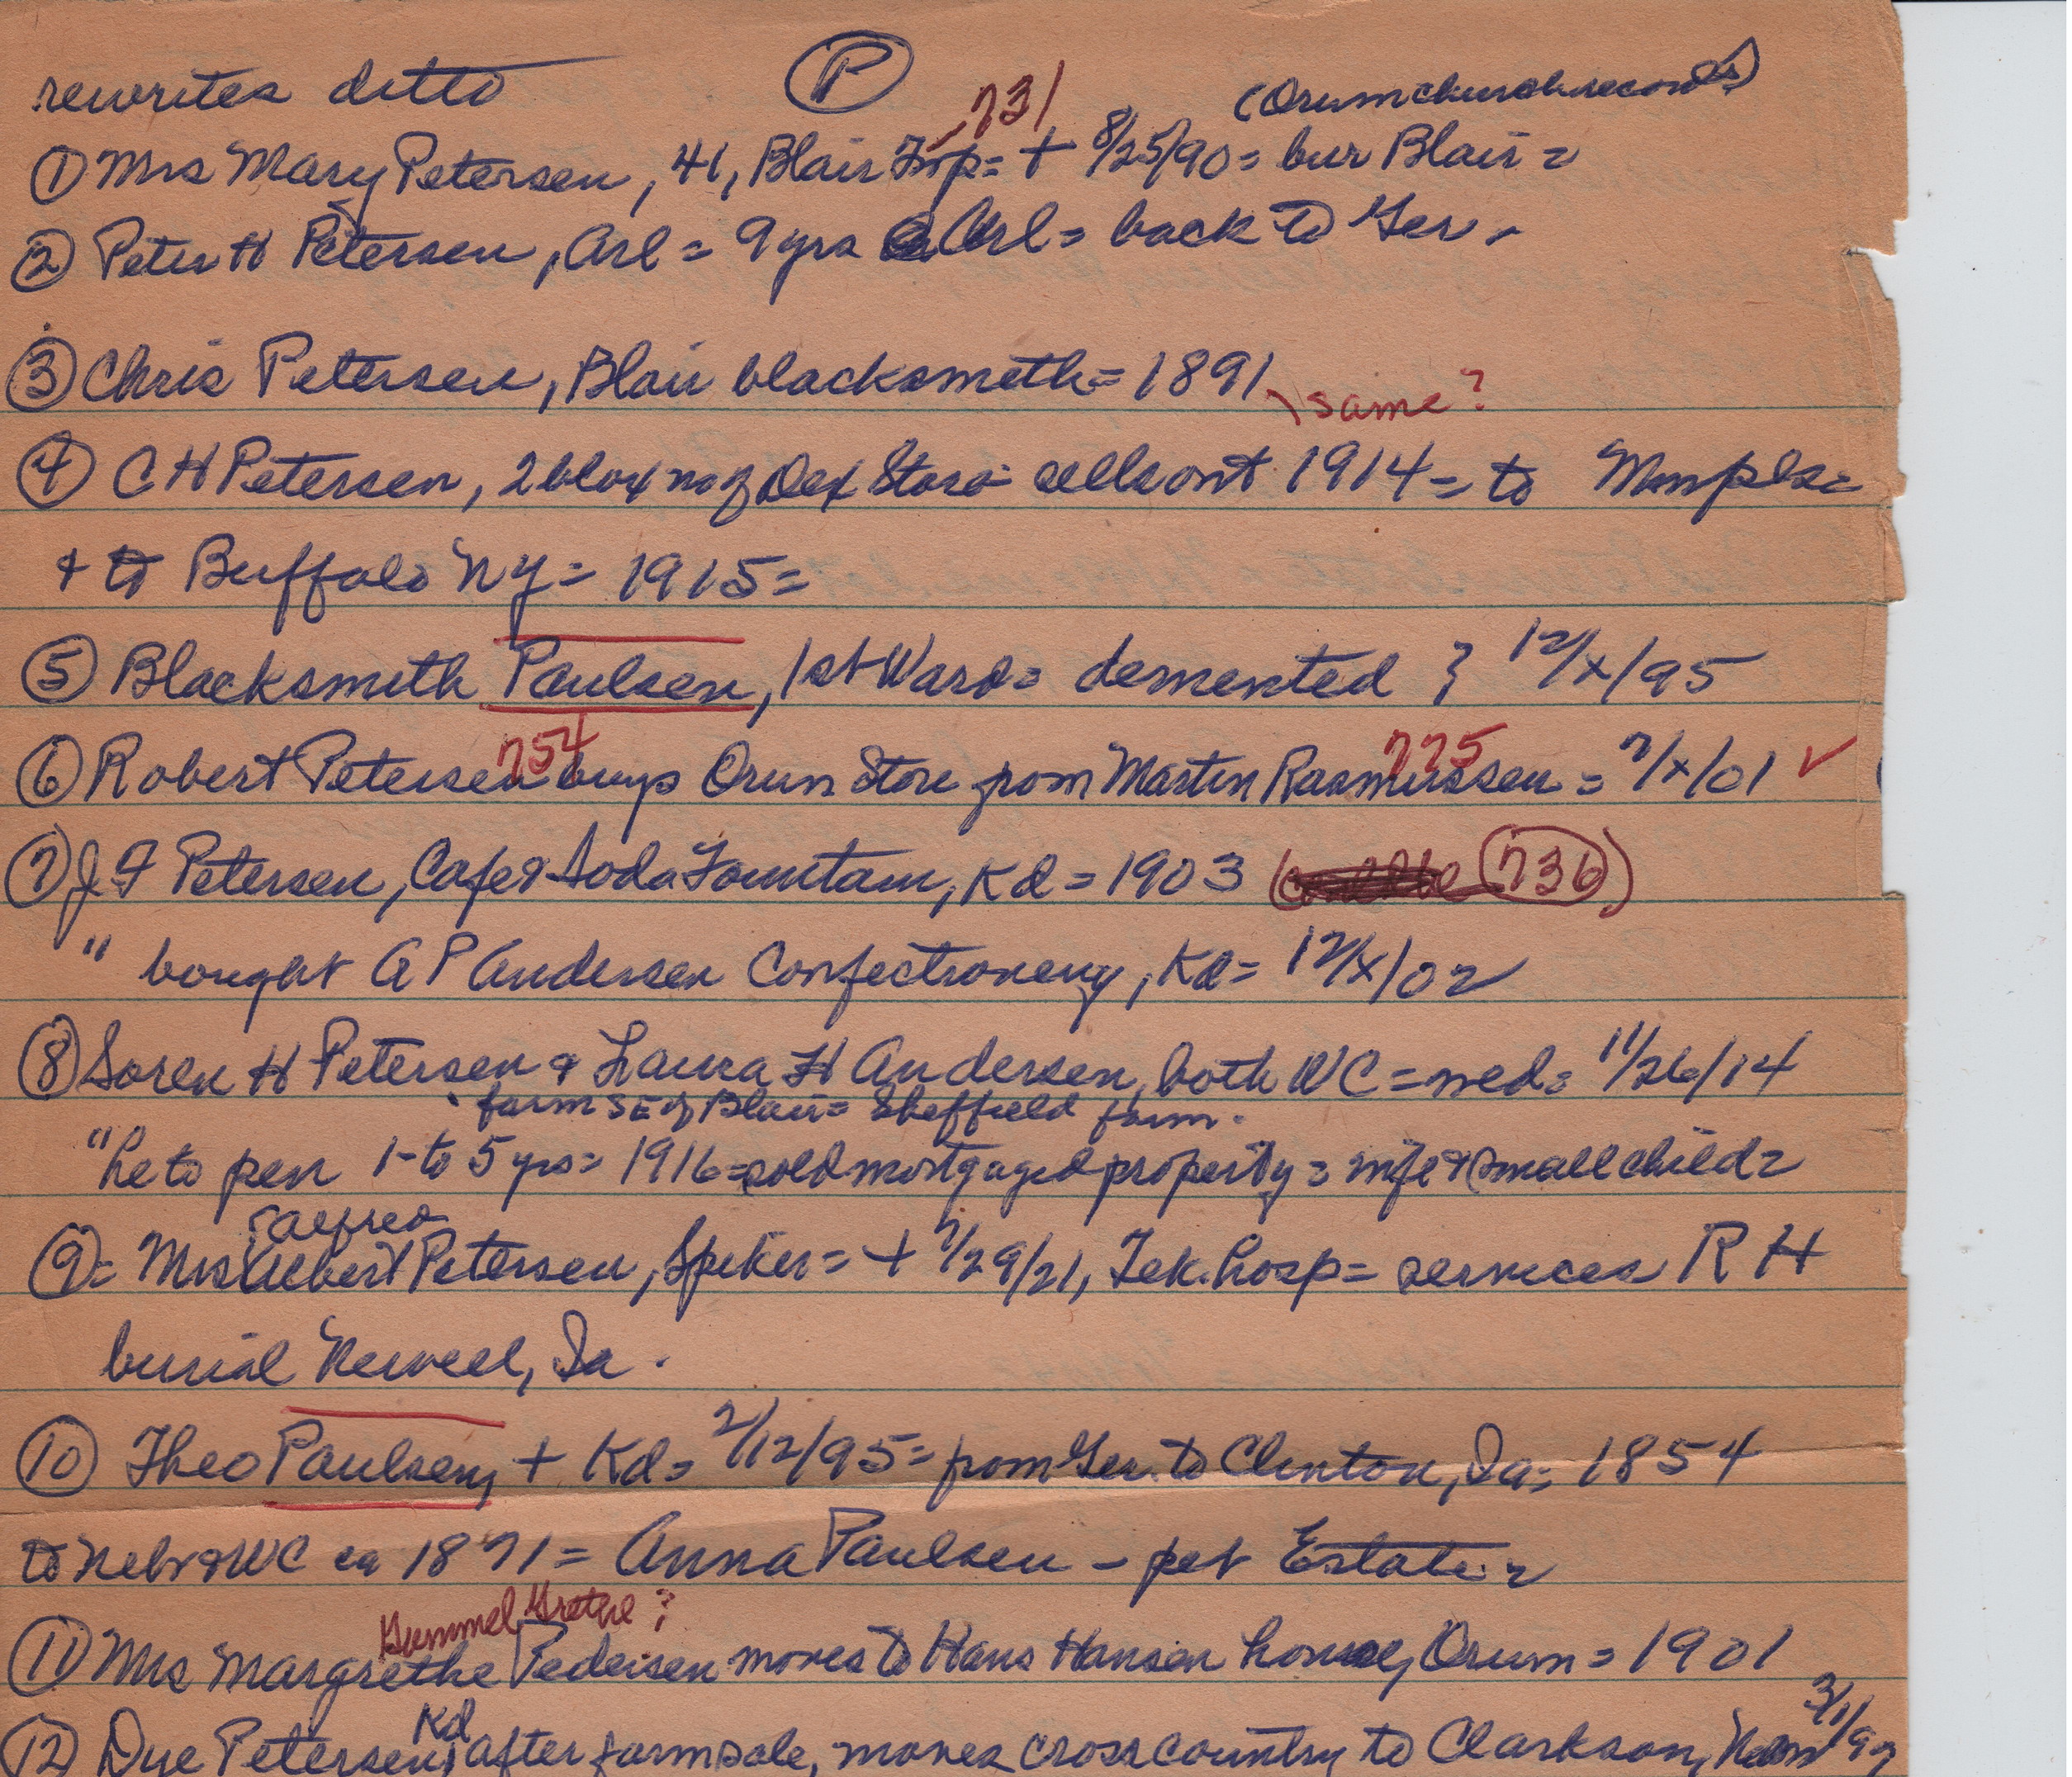 rewrites ditto
P
731
(Orum church records)
① Mrs Mary Petersen, 41, Blair Twp= + 8/25/90= bur Blair=
② Peter H Petersen, Arl= 9 yrs Arl= back to Ger.
③ Chris Petersen, Blair blacksmith= 1891
same?
④ C H Petersen, 2 blox no of Dex Store= sells out 1914= to Mnpls=
& to Buffalo NY= 1915=
⑤ Blacksmith Paulsen, 1st Ward= demented } 12/x/95
754
775
⑥ Robert Petersen buys Orum Store from Martin Rasmussen= 7/x/01 ✓
⑦ J F Petersen, Cafe & Soda Fountain, Kd= 1903 (736)
" bought A P Andersen Confectionery, Kd= 12/x/02
⑧ Soren H Petersen & Laura H Andersen, both WC= wed= 11/26/14
farm SE of Blair= Sheffield farm.
" he to pen 1-to 5 yrs= 1916= sold mortgaged property= wife & small child=
(Alfred
⑨= Mrs (Albert) Petersen, Spiker= + 7/29/21, Tek. hosp= services R H
burial Newell, Ia.
⑩ Theo Paulsen, + Kd= 2/12/95= from Ger. to Clinton, Ia= 1854
to Nebr & WC ca 1871= Anna Paulsen - pet Estate=
Gammel Grethe?
⑪ Mrs Margrethe Pedersen moves to Hans Hansen house, Orum= 1901
Kd
3/1/97
⑫ Due Petersen, after farm sale, moves cross country to Clarkson,